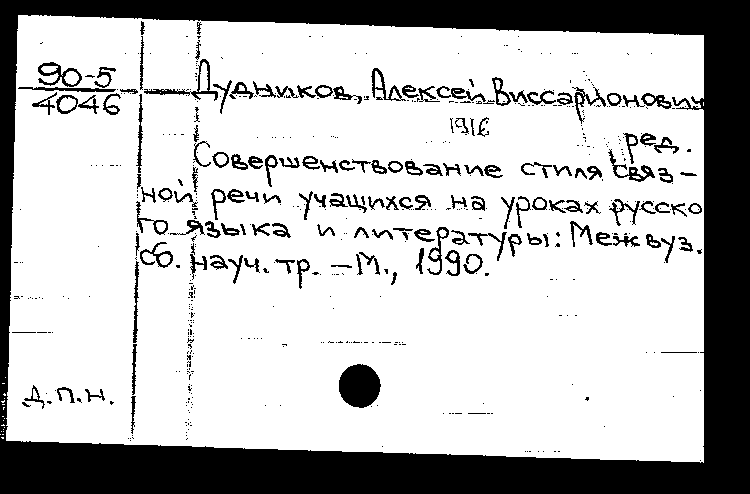 90-5
4046
Дудников, Алексей Виссарионович
1916
ред.
Совершенствование стиля связ-
ной речи учащихся на уроках русско
го языка и литературы: Межвуз.
сб. науч. тр. – М., 1990.
Д.П.Н.